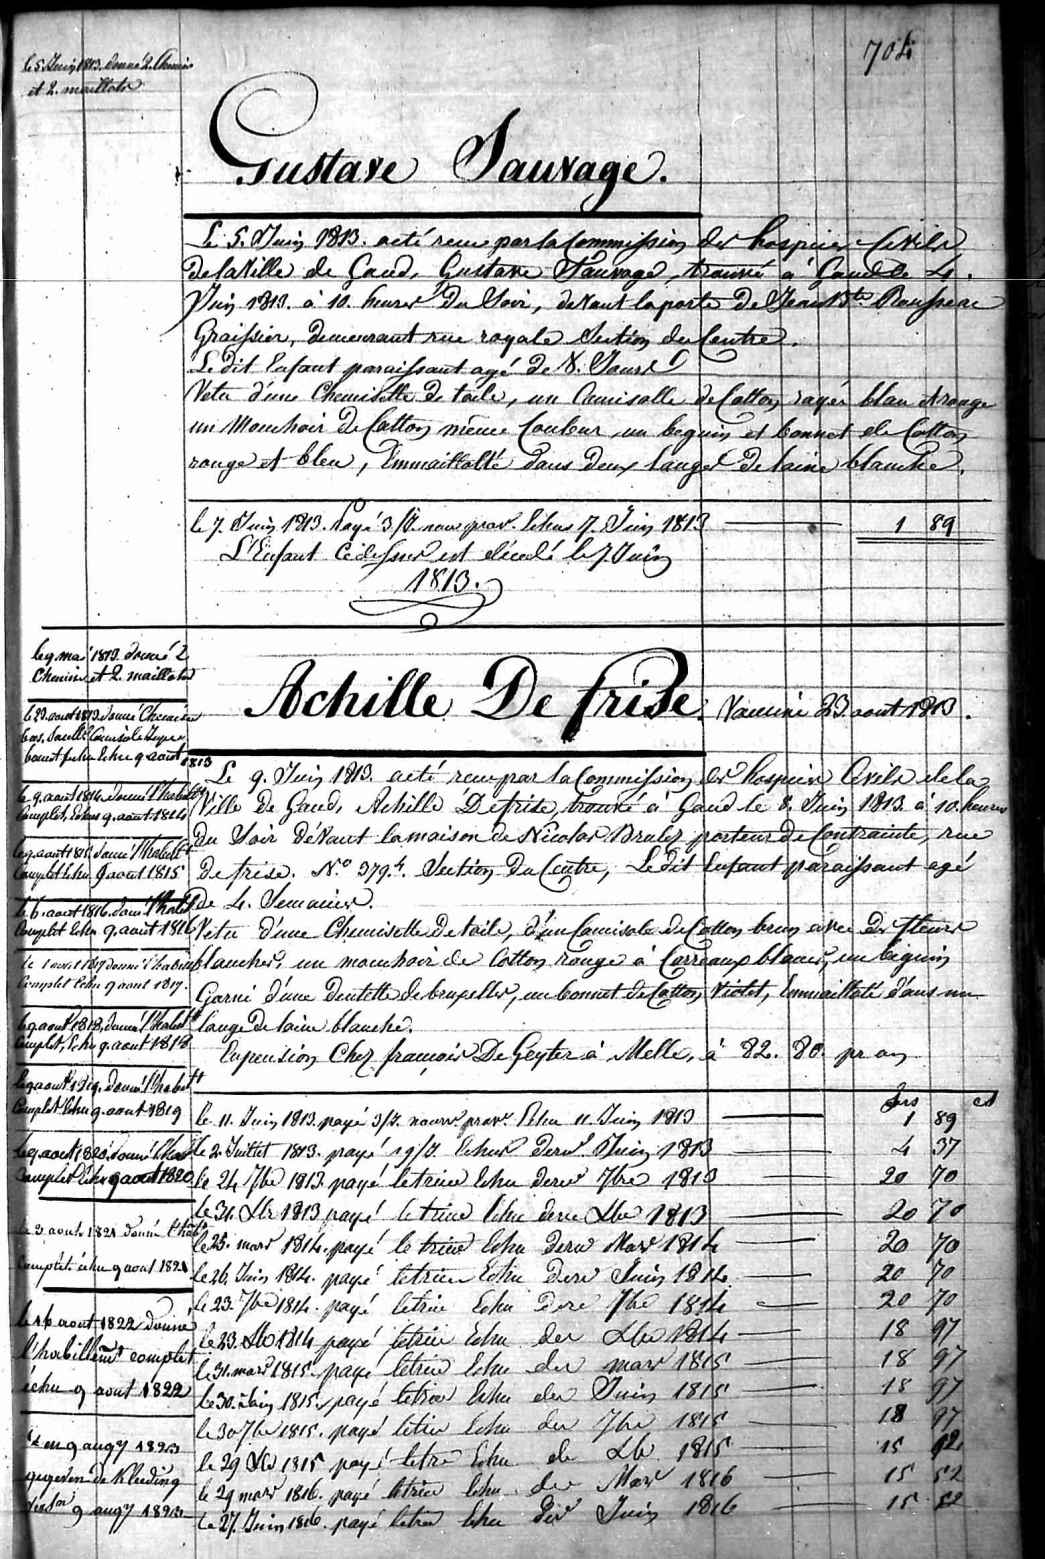 704
le 5 Juin 1813. donné 2. Chemises
et 2. maillots
Gustave Sauvage.
Le 5. Juin 1813. acté reçu par la Commission des hospices Civils
de la Ville de Gand, Gustave Sauvage, trouvé à Gand le 4.
Juin 1813. à 10. heures du Soir, devant la porte de Jean Bte. Rousseau
Graissier, demeurant rue royale Section du Centre.
Le dit Enfant paraissant agé de 8. Jours
Vetu d'une Chemisette de toile, un Camisolle de Cotton rayér blau et rouge
un Mouchoir de Cotton même Couleur, un beguin et bonnet de Cotton
rouge et bleu, Emmaillotté dans deux langes de laine blanche.
le 7. Juin 1813. Payé 3/8. nour prov. Echus 7. Juin 1813 1 89
L'Enfant Cidessus est décedé le 7. Juin
1813.
le 9 mai 1813. donné 2
Chemises et 2. maillots
Achille De frise. Vacciné 23 aout 1813.
le 23. aout 1813. donné Chemise
bonnet echu 9 aout 1813
Le 9. Juin 1813. acté reçu par la Commission des hospices Civils de la
Ville de Gand, Achille De frise, trouvé à Gand le 8. Juin 1813. à 10. heures
du Soir devant la maison de Nicolas Brulez porteur de Contrainte, rue
de frise. No. 379.4. Section du Centre, Le dit Enfant paraissant agé
de 4. Semaines.
Vetu d'une Chemisette de toile, d'un Camisole de Cotton brun avec des fleurs
blanches, un mouchoir de Cotton rouge à Carreaux blancs, un beguin
Garni d'une dentelle de bruxelles, un bonnet de Cotton Violet, Emmailloté dans un
lange de laine blanche.
En pension Chez françois De Geyter à Melle, à 82. 80. pr an
le 9. aout 1814. donné l'habillt
Complet, Echus 9. aout 1814
le 9. aout 1815. donné l'habillt
Complet Echu 9 aout 1815
le 6. aout 1816. donné l'habillt
Complet Echu 9. aout 1816
le 1 aout 1817 donné l'habillt
Complet Echu 9 aout 1817.
le 9 aout 1818, donné l'habillt
Complet, Echu 9. aout 1818
le 9 aout 1819. donné l'habillt
Complet Echu 9. aout 1819
le 9 aout 1820 donné l'habt
Complet Echu 9 aout 1820
le 3 aout 1821 donné l'habt
Complet échu 9 aout 1821
le 16 aout 1822 donné
l'habillemt complet
échu 9 aout 1822
9 augy 1823
gegeven de Kleeding
9 augy 1823
frs ct
le 11. Juin 1813. payé 3/8. nourr prov. Echu 11. Juin 1813 1 89
le 2. Juillet 1813. payé 19/. Echus dern. Juin 1813 4 37
le 24 7bre 1813. payé letrim Echu dern 7bre 1813 20 70
le 31. Xbr 1813 payé le trim Echu dern Xbre 1813 20 70
le 25. mars 1814. payé le trim Echu dern Mars 1814 20 70
le 26. Juin 1814. payé letrim Echu der Juin 1814. 20 70
le 23. 7bre 1814. payé letrim Echu der 7bre 1814 20 70
le 23. Xbr 1814 payé letrim Echu der Xbre 1814 18 97
le 31. mars 1815. payé letrim Echu der mars 1815 18 97
le 30. Juin 1815. payé letrim Echu der Juin 1815 18 97
le 30 7bre 1815. payé letrim Echu der 7bre 1815 18 97
le 29 Xbr 1815 payé letrim Echu de Xbr 1815 15 52
le 29 mars 1816. payé letrim Echu der Mars 1816 15 52
le 27. Juin 1816. payé letrim Echu der Juin 1816 15 52